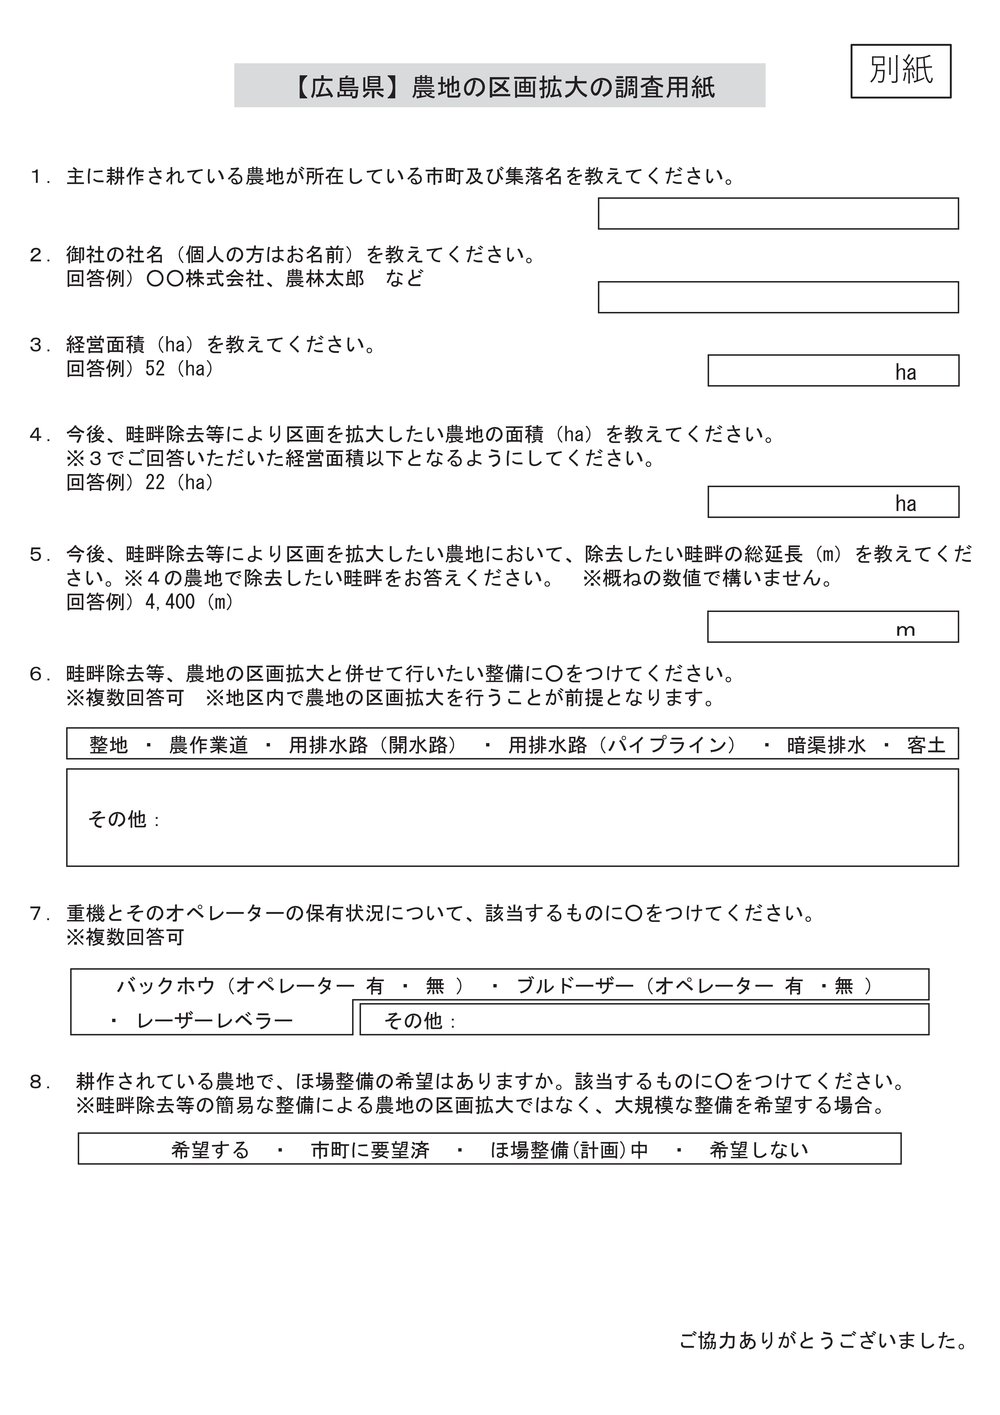 別紙
【広島県】農地の区画拡大の調査用紙
１．主に耕作されている農地が所在している市町及び集落名を教えてください。
２．御社の社名（個人の方はお名前）を教えてください。
回答例）〇〇株式会社、農林太郎　など
３．経営面積（ha）を教えてください。
回答例）52（ha）
ha
４．今後、畦畔除去等により区画を拡大したい農地の面積（ha）を教えてください。
※３でご回答いただいた経営面積以下となるようにしてください。
回答例）22（ha）
ha
５．今後、畦畔除去等により区画を拡大したい農地において、除去したい畦畔の総延長（m）を教えてくだ
さい。※４の農地で除去したい畦畔をお答えください。　※概ねの数値で構いません。
回答例）4,400（m）
ｍ
６．畦畔除去等、農地の区画拡大と併せて行いたい整備に〇をつけてください。
※複数回答可　※地区内で農地の区画拡大を行うことが前提となります。
整地 ・ 農作業道 ・ 用排水路（開水路） ・ 用排水路（パイプライン） ・ 暗渠排水 ・ 客土
その他：
７．重機とそのオペレーターの保有状況について、該当するものに〇をつけてください。
※複数回答可
バックホウ（オペレーター 有 ・ 無 ） ・ ブルドーザー（オペレーター 有 ・無 ）
・ レーザーレベラー
その他：
８．　耕作されている農地で、ほ場整備の希望はありますか。該当するものに〇をつけてください。
※畦畔除去等の簡易な整備による農地の区画拡大ではなく、大規模な整備を希望する場合。
希望する ・ 市町に要望済 ・ ほ場整備(計画)中 ・ 希望しない
ご協力ありがとうございました。